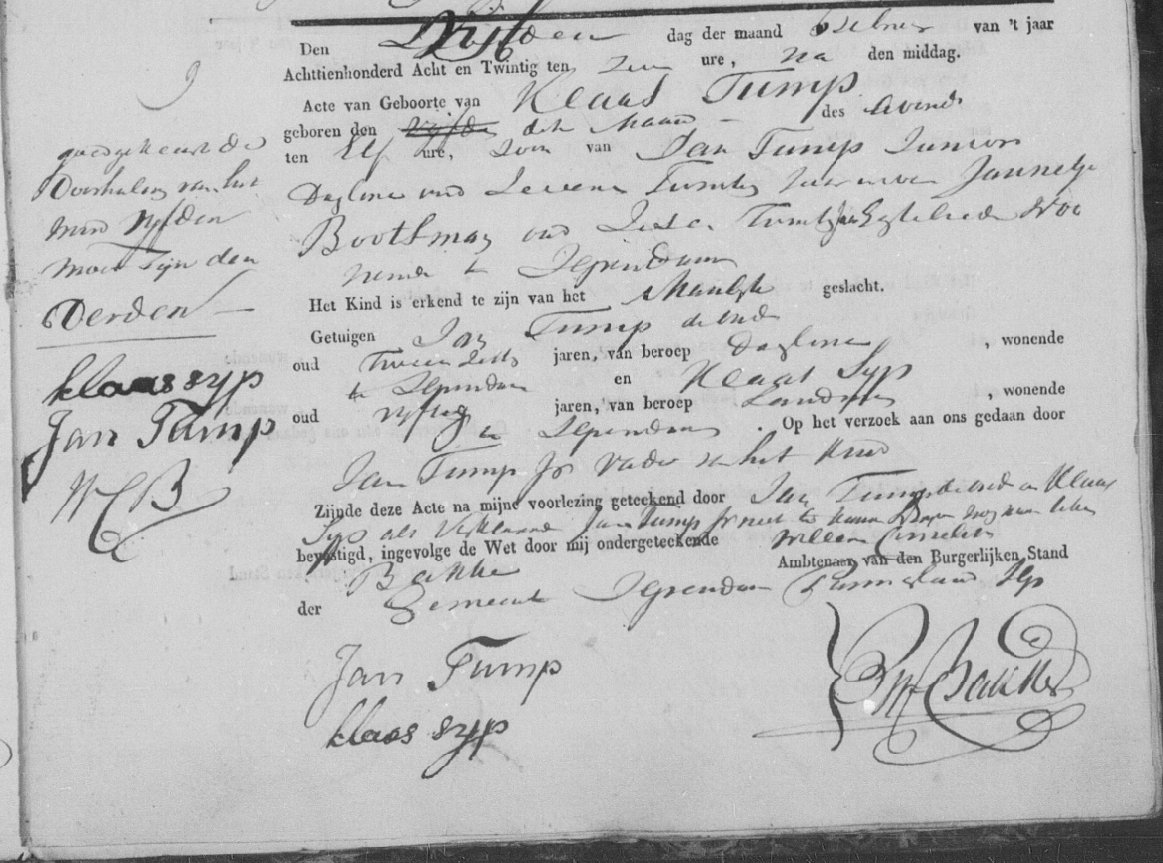 9
goedgekeurd de
Doorhaling van het
woord vyfden
moet zijn den
Derden
klaas syp
Jan Tump
WCB
Den Vijfden dag der maand van 't jaar
Achttienhonderd Acht en Twintig ten ure, na den middag.
Acte van Geboorte van Klaas Tump
geboren den vyfden deze Maand des Avonds
ten Elf ure, Zoon van Jan Tump Junior
Dagloner oud Zeven Twintig Jaar en van Jannetje
Boothman oud Twintig Jaar Egtelieden Woo
nende te Ilpendam
Het Kind is erkend te zijn van het Manlyk geslacht.
Getuigen Jan Tump de Oude
oud jaren, van beroep Dagloner, wonende
te Ilpendam en Klaas Syp
oud vyftig jaren, van beroep Landman, wonende
te Ilpendam. Op het verzoek aan ons gedaan door
Jan Tump Jr vader van het Kind
Zijnde deze Acte na mijne voorlezing geteekend door Jan Tump de Oude en Klaas
Syp als Verklaarde Jan Tump Jr niet te kunnen
bevestigd, ingevolge de Wet door mij ondergeteekende Willem Cornelis
Bakker Ambtenaar van den Burgerlijken Stand
der Gemeente Ilpendam Purmerland Ilp
Jan Tump
klaas syp